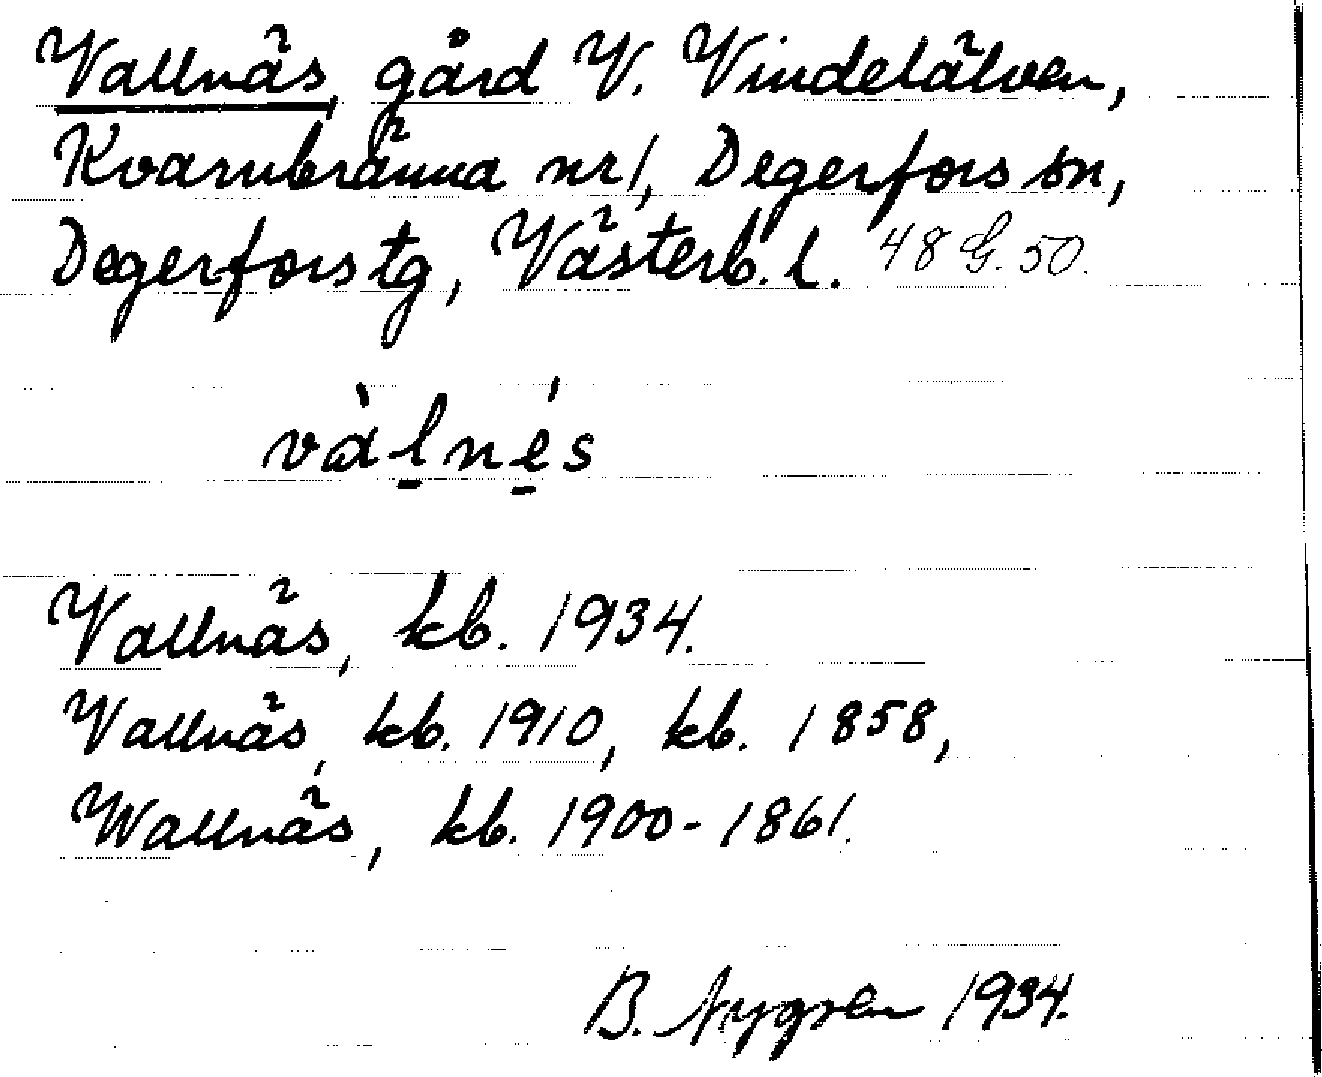 Vallnäs, gård V. Vindelälven,
Kvarnbränna nr 1, Degerfors sn,
Degerfors tg, Västerb. l. 48 G. 50.
và̱lné̱s
Vallnäs, kb. 1934.
Vallnäs, kb. 1910, kb. 1858,
Wallnäs, kb. 1900-1861.
B. Nygren 1934.